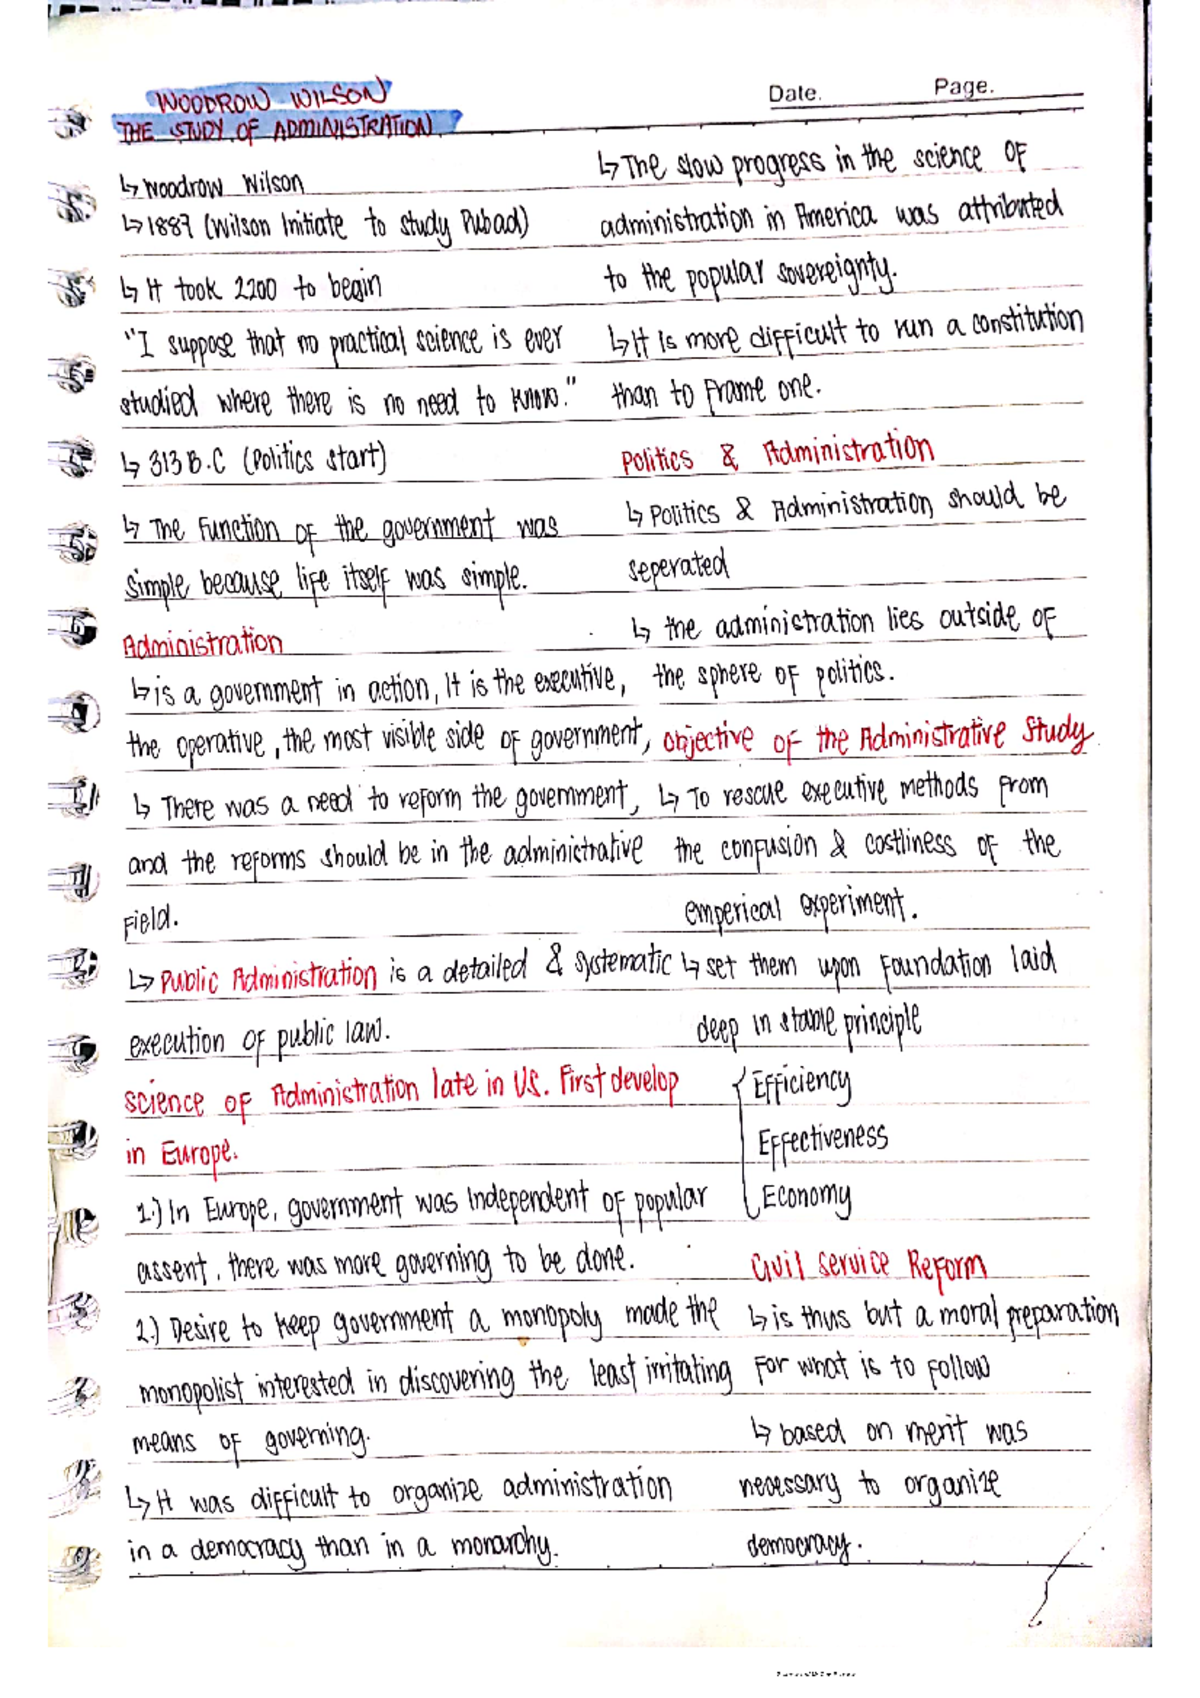 WOODROW WILSON
THE STUDY OF ADMINISTRATION
Date.
Page.
↳ Woodrow Wilson
↳ 1887 (Wilson Initiate to study Pubad)
↳ It took 2200 to begin
"I suppose that no practical science is ever
studied where there is no need to know."
↳ 313 B.C (Politics start)
↳ The Function of the government was
simple because life itself was simple.
Administration
↳ is a government in action, It is the executive,
the operative, the most visible side of government,
↳ There was a need to reform the government,
and the reforms should be in the administrative
Field.
↳ Public Administration is a detailed & systematic
execution of public law.
science of Administration late in US. First develop
in Europe.
1.) In Europe, government was Independent of popular
assent, there was more governing to be done.
2.) Desire to keep government a monopoly made the
monopolist interested in discovering the least irritating
means of governing.
↳ It was difficult to organize administration
in a democracy than in a monarchy.
↳ The slow progress in the science of
administration in America was attributed
to the popular sovereignty.
↳ It is more difficult to run a constitution
than to Frame one.
Politics & Administration
↳ Politics & Administration should be
seperated
↳ the administration lies outside of
the sphere of politics.
objective of the Administrative Study
↳ To rescue executive methods from
the confusion & costliness of the
emperical experiment.
↳ set them upon foundation laid
deep in stable principle
Efficiency
Effectiveness
Economy
Civil service Reform
↳ is thus but a moral preparation
For what is to Follow
↳ based on merit was
necessary to organize
democracy.